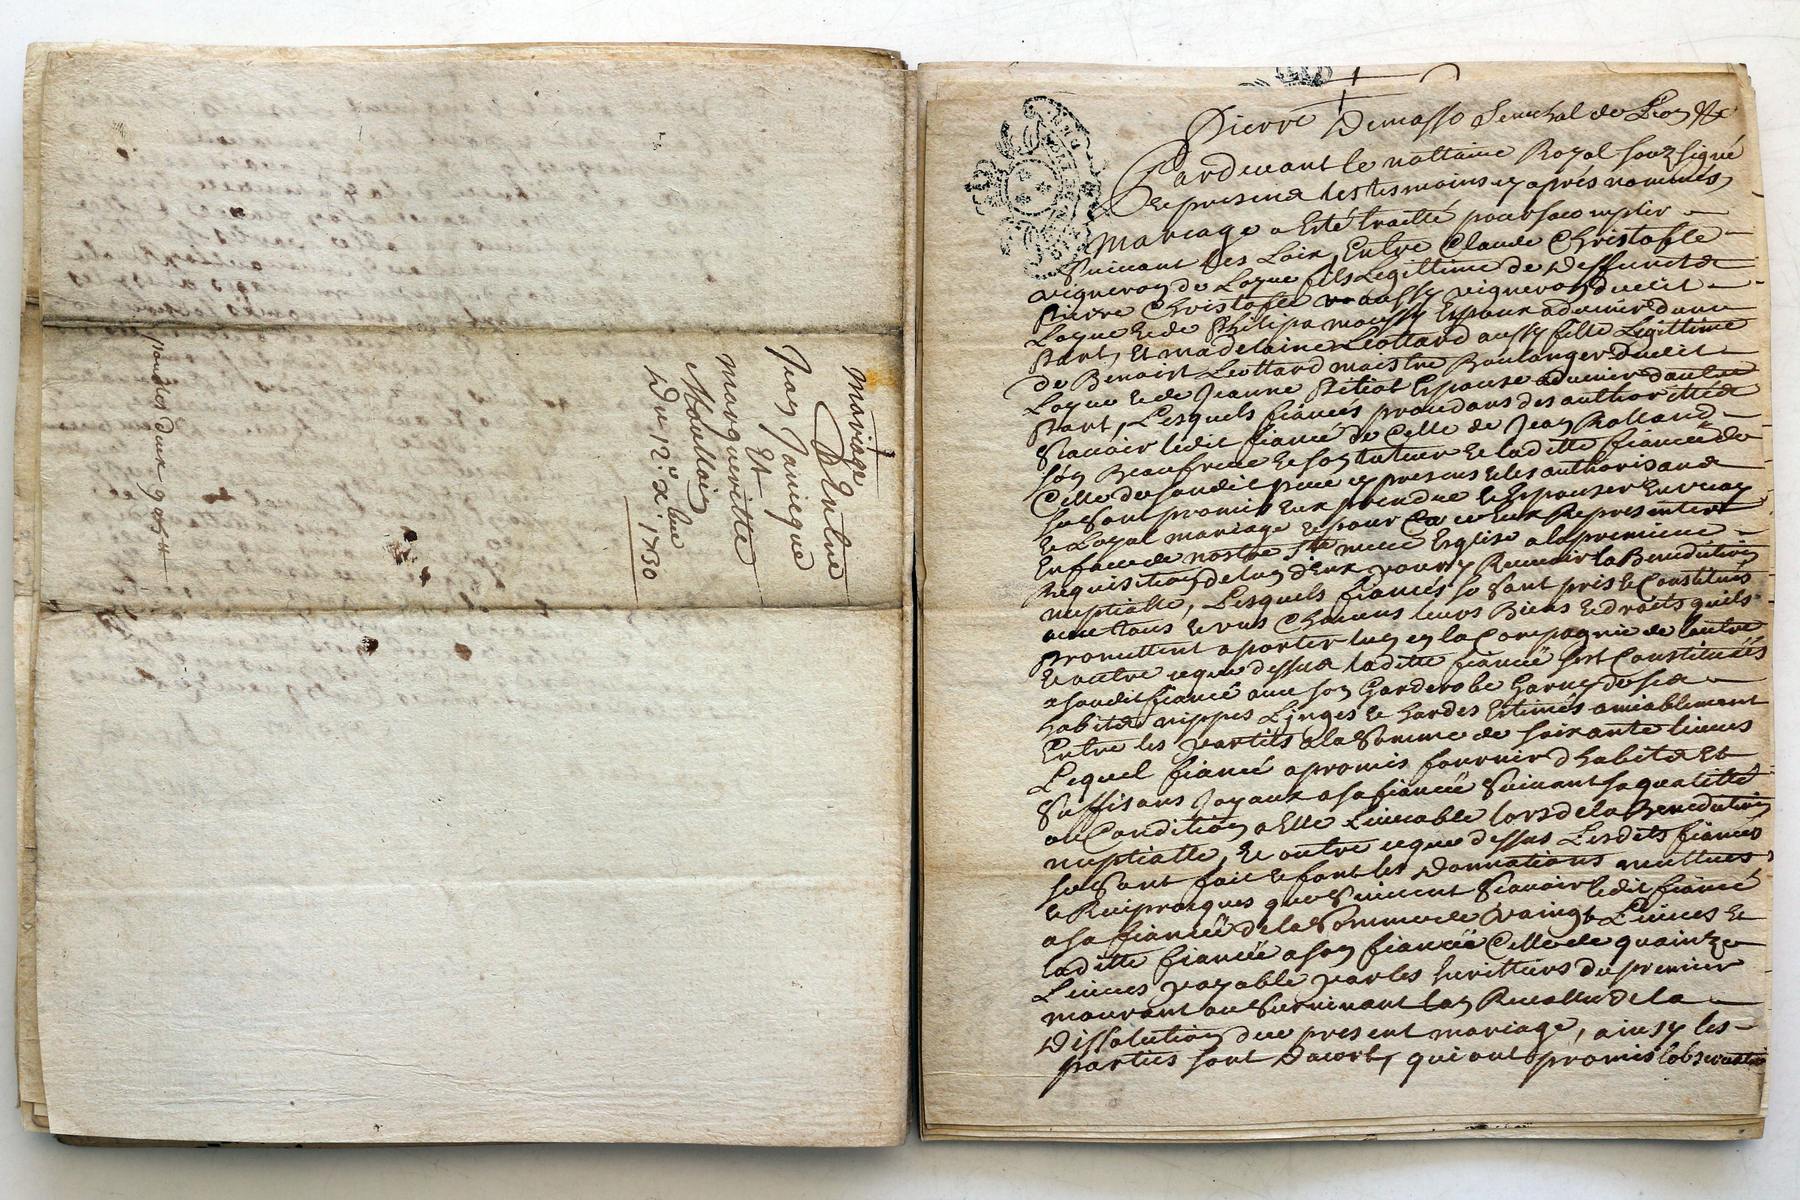 Mariage
Entre
Jean Janicque
Et
Margueritte
Moullain
Du 12.e x.bre 1730
pour les deux
Pierre Demasso Senechal de Lion &c
Pardevant le nottaire Royal souzsigné
Et presend les tesmoins cy aprés nommés
Mariage a Esté traitté pour sacomplir
Suivant les Loix, Entre Claude Christofle
vigneron de Loyue fils Legittime de deffunctz
Pierre Christofle vigneron dudit
Loyue Et de Philipa moussy Espoux advenir dune
Part, Et madelaine Leottard aussy fille Legittime
de Benoist Leottard maistre Boulanger dudit
Loyue Et de Jeanne Pitiot Espouse advenir dautre
Part, Lesquels fiancés proceddans des authoritéz
Scavoir ledit fiancé de Celle de Jean Rolland
son Beaufrere Et son tuteur Et laditte fiancée de
Celle de sondit pere cy presens Et les authorisand
se sont promis Eux prendre Et Espouser En vray
Et Loyal mariage Et pour Ce Eux Representer
En face de nostre Ste mere Esglise a la premiere
Requisition de lun deux pour y Recevoir la Benediction
nuptialle, Lesquels fiancés se sont pris Et Constitués
avec tous Et uns Chacuns leurs Biens Et droits quils
Promettent aporter lun en la Compagnie de lautre
Et outre ce que dessus laditte fiancée sest Constituéé
a sondit fiancé avec son Garderobe Garny de ses
habitz nippes Linges Et hardes Estimés amiablement
Entre les partiés a la somme de soixante livres
Lequel fiancé a promis fournir dhabitz Et
Suffisans Joyaux a sa fiancée Suivant sa qualitté
ou Condition a Elle Livrable lors de la Benediction
nuptialle, Et outre ce que dessus Lesdits fiancés
se sont fait Et font les Donnations mutues
Et Reciproques que Suivent Scavoir ledit fiancé
a sa fiancée de la Somme de vaingt Livres Et
laditte fiancée a son fiancé Celle de quainze
Livres payable par les herittiers du premier
mourant au Survivant lan Revollu de la
Dissolution du present mariage, ainsy les
parties sont dacort, qui ont promis lobservation